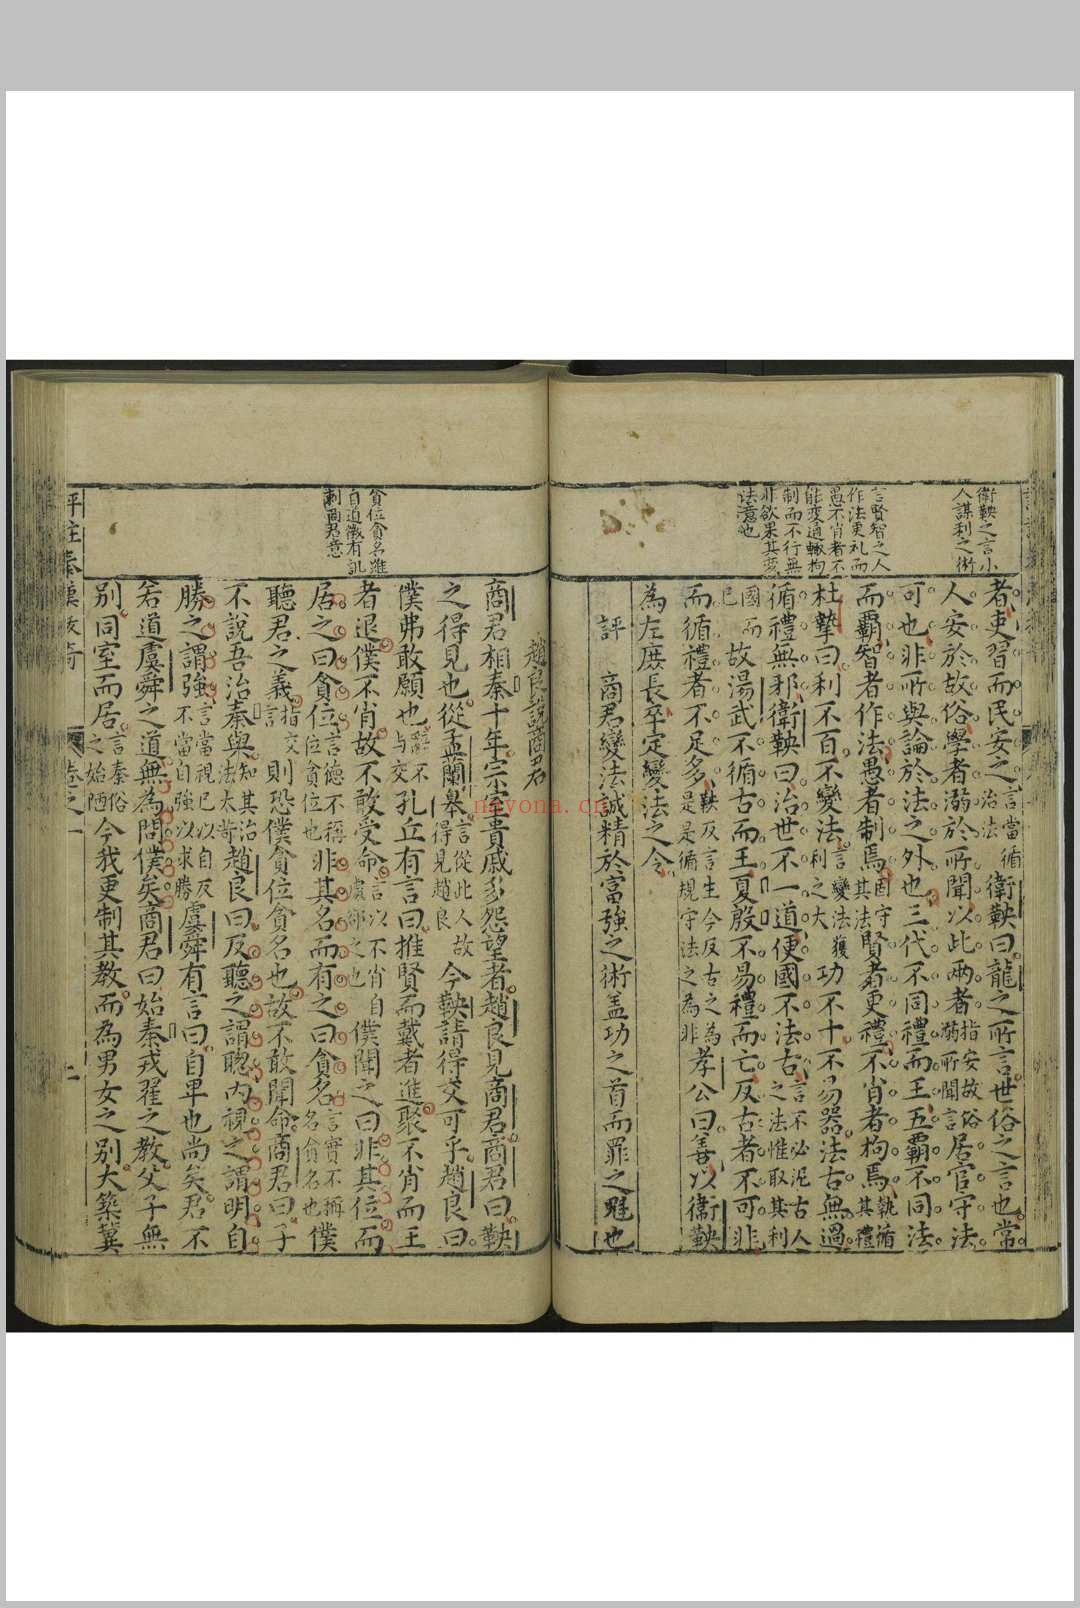 衛鞅之言小
人謀利之術
言賢智之人
作法更礼而
愚不肖者不
能変通輙拘
制而不行無
非欲果其变
法意也
者吏習而民安之言當循治法衛鞅曰龍之所言世俗之言也常
人安於故俗學者溺於所聞以此兩者指安故俗猶所聞言居官守法
可也非所與論於法之外也三代不同禮而王五霸不同法
而霸智者作法愚者制焉固守其法賢者更禮不肖者拘焉執循其禮
杜摯曰利不百不變法言變法獲利之大功不十不易器法古無過
循禮無邪衛鞅曰治世不一道便國不法古言不必泥古人之法惟取其利
國而已故湯武不循古而王夏殷不易禮而亡反古者不可非
而循禮者不足多鞅反言生今反古之為是是循規守法之為非孝公曰善以衛鞅
為左庶長卒定變法之令
評 商君變法誠精於富強之術盖功之首而罪之魁也
貪位貪名雖
自道微有訊
刺商君意
趙良說商君
商君相秦十年宗室貴戚多怨望者趙良見商君商君曰鞅
之得見也從孟蘭皋言從此人故得見趙良今鞅請得交可乎趙良曰
僕弗敢願也辭不与交孔丘有言曰推賢而戴者進聚不肖而王
者退僕不肖故不敢受命言以不肖自處卻之也僕聞之曰非其位而
居之曰貪位言德不稱位貪位也非其名而有之曰貪名言實不稱名貪名也僕
聽君之義指交言則恐僕貪位貪名也故不敢聞命商君曰子
不說吾治秦與知其治法太苛趙良曰反聽之謂聰内視之謂明自
勝之謂強言當視已以自反不當自強以求勝虞舜有言曰自卑也尚矣君不
若道虞舜之道無為問僕矣商君曰始秦戎翟之教父子無
別同室而居言秦俗之始陋今我更制其教而為男女之別大築冀
評註秦漢
卷之一
nayona.cn